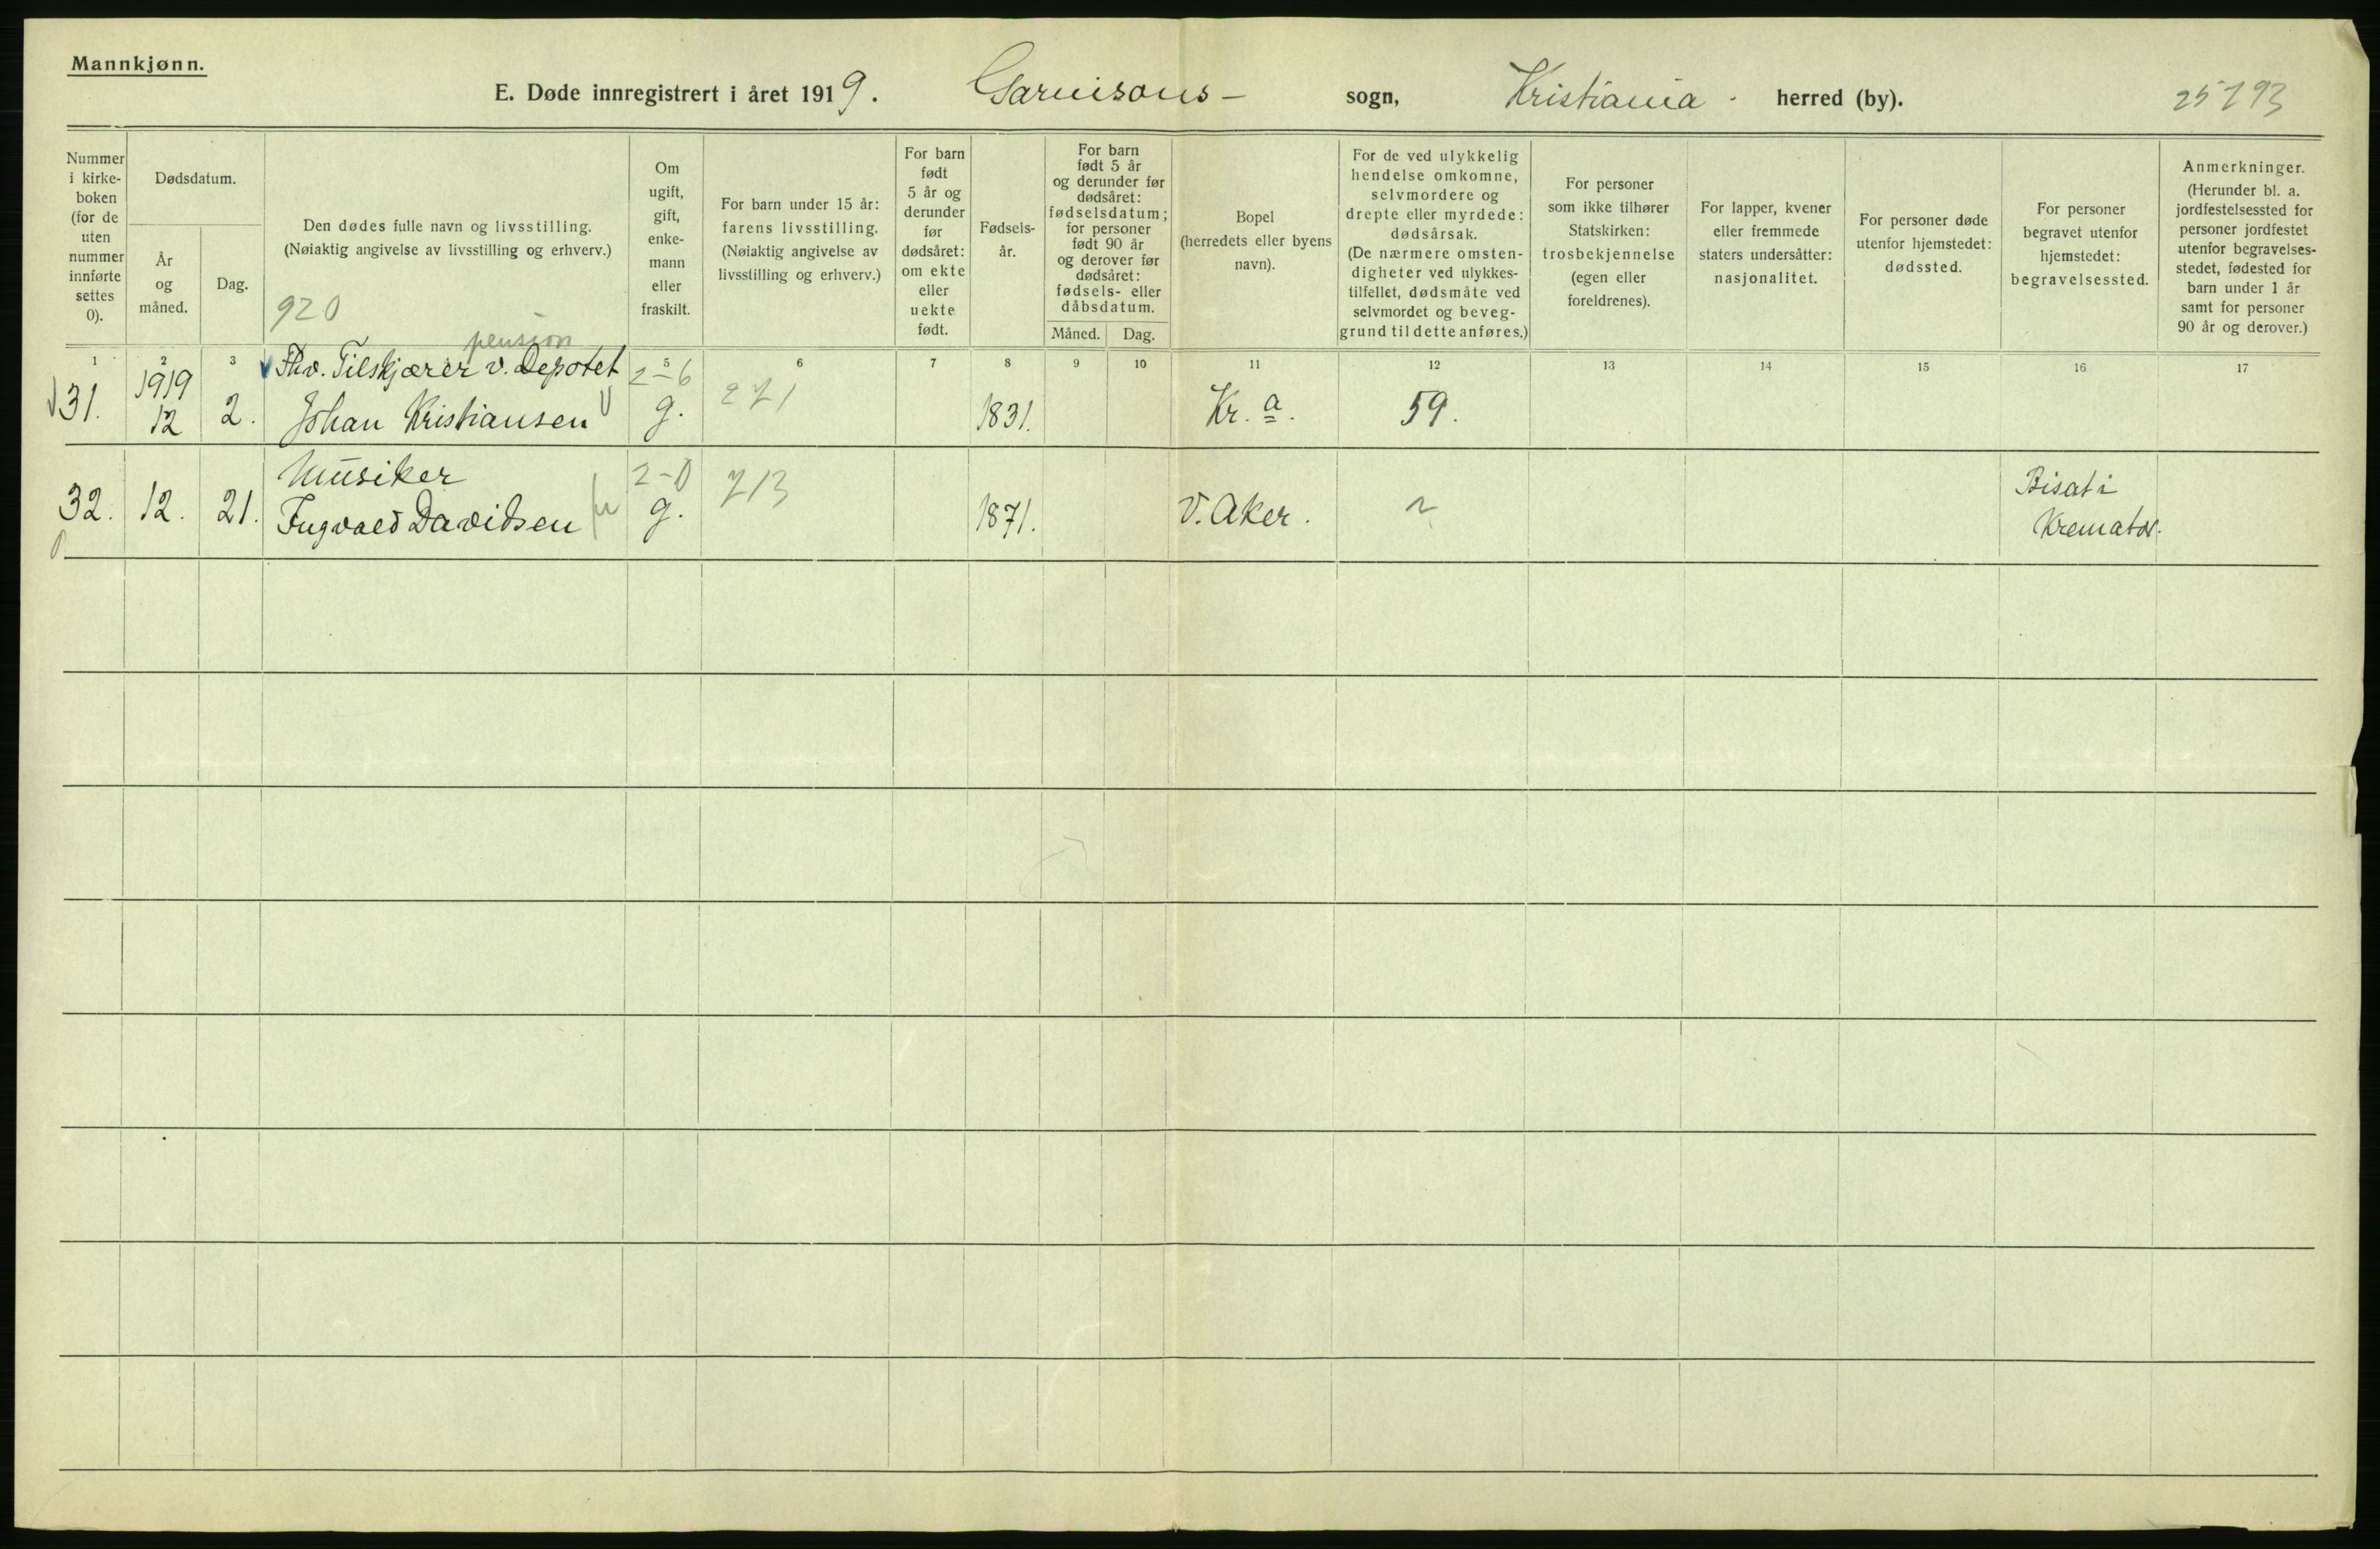 Mannkjønn.
E. Døde innregistrert i året 1919. Garnisons- sogn, Kristiania. herred (by). 25793
Nummer i kirke- boken (for de uten nummer innførte settes 0).
Dødsdatum.
År og måned.
Dag.
Den dødes fulle navn og livsstilling.
(Nøiaktig angivelse av livsstilling og erhverv.)
920
Om ugift, gift, enke- mann eller fraskilt.
For barn under 15 år: farens livsstilling. (Nøiaktig angivelse av livsstilling og erhverv.)
For barn født 5 år og derunder før dødsåret: om ekte eller uekte født.
Fødsels- år.
For barn født 5 år og derunder før dødsåret: fødselsdatum; for personer født 90 år og derover før dødsåret: fødsels- eller dåbsdatum.
Måned. Dag.
Bopel (herredets eller byens navn).
For de ved ulykkelig hendelse omkomne, selvmordere og drepte eller myrdede: dødsårsak. (De nærmere omsten- digheter ved ulykkes- tilfellet, dødsmåte ved selvmordet og beveg- grund til dette anføres.)
For personer som ikke tilhører Statskirken: trosbekjennelse (egen eller foreldrenes).
For lapper, kvener eller fremmede staters undersåtter: nasjonalitet.
For personer døde utenfor hjemstedet: dødssted.
For personer begravet utenfor hjemstedet: begravelsessted.
Anmerkninger. (Herunder bl. a. jordfestelsessted for personer jordfestet utenfor begravelses- stedet, fødested for barn under 1 år samt for personer 90 år og derover.)
1 2 3 5 6 7 8 9 10 11 12 13 14 15 16 17
pension
Fhv. Tilskjærer v. Depotet 2-6
31. 1919 12 2. Johan Kristiansen g. 271 1831. Kr.a. 59.
Musiker 2-0 713 Bisat i
32. 12. 21. Ingvald Davidsen g. 1871. V. Aker. Kremator.